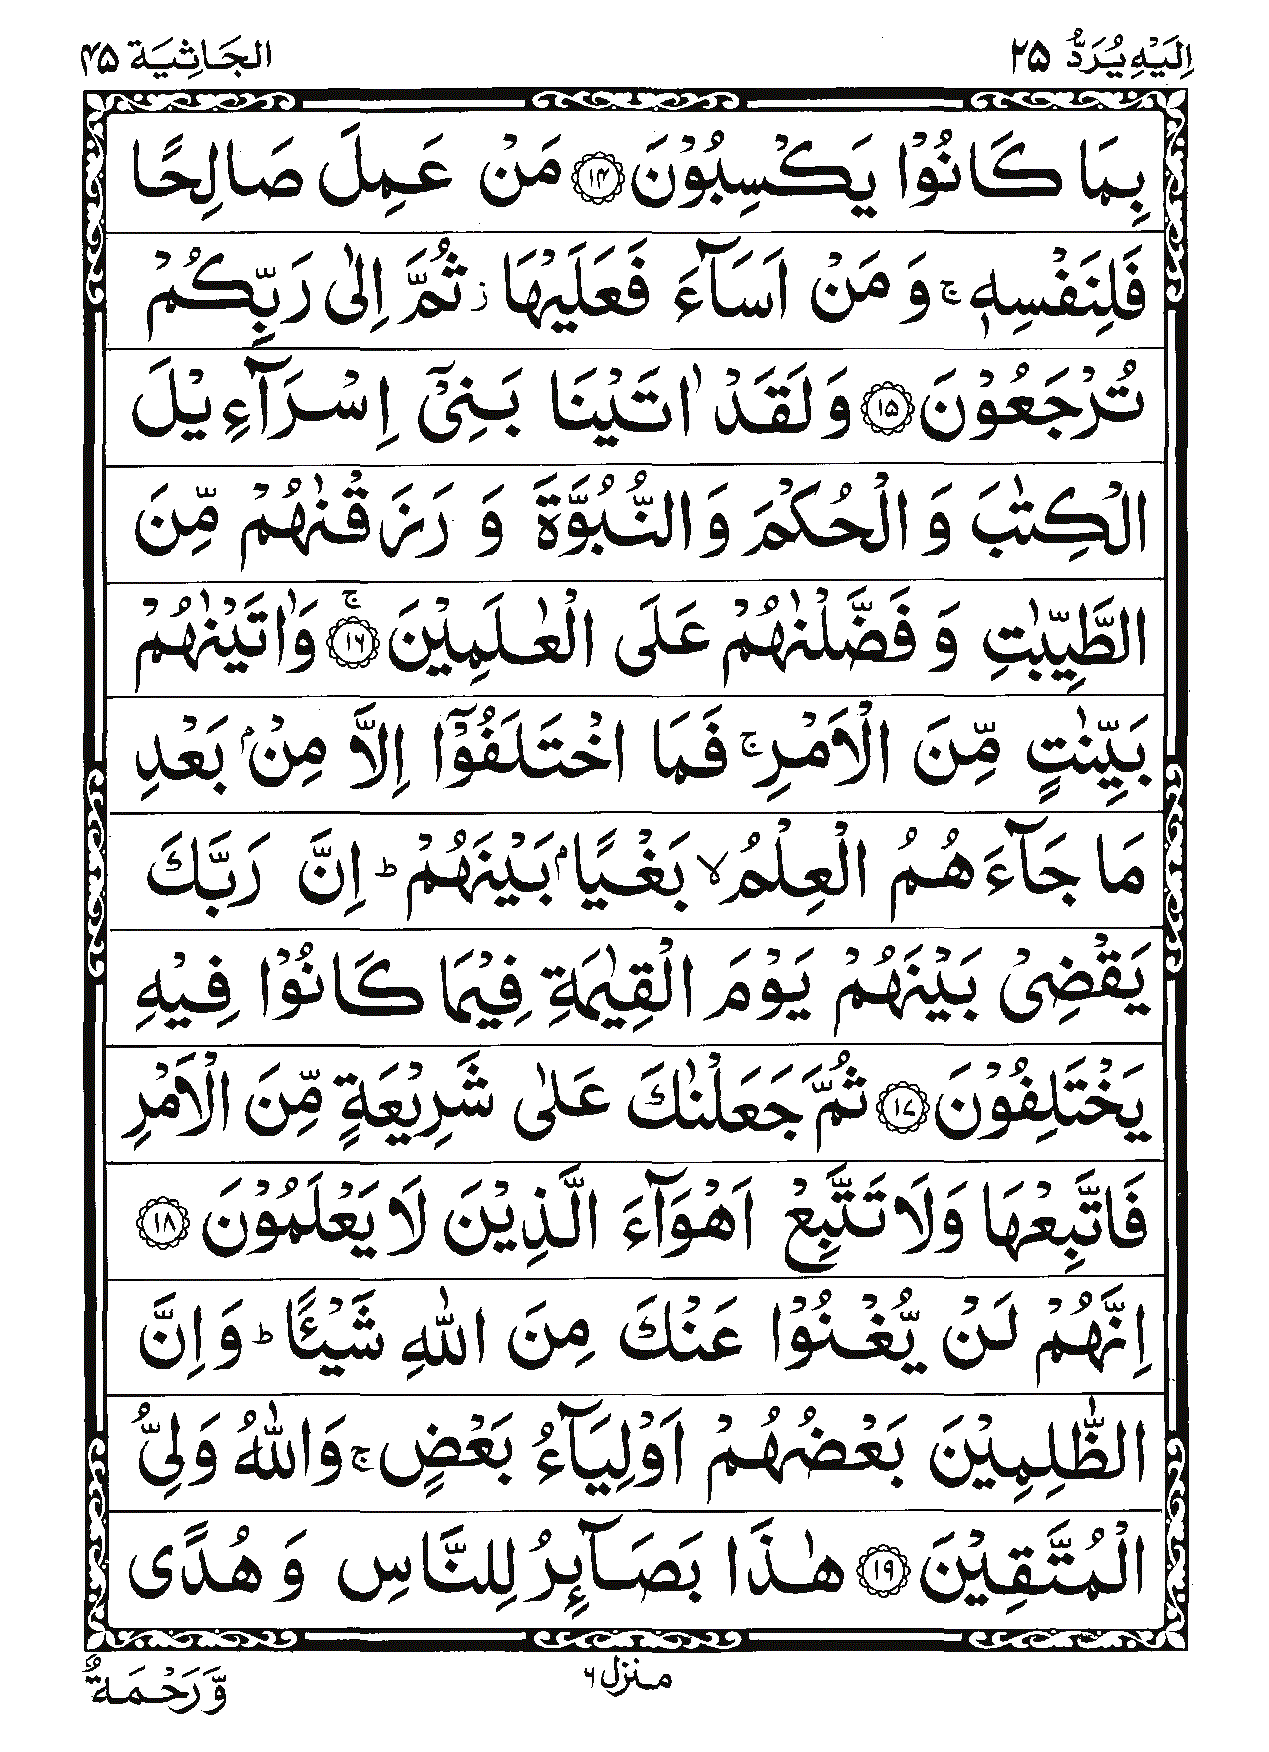 اِلَيْهِ يُرَدُّ ٢٥
الجَاثِيَة ٤٥
بِمَا كَانُوْا يَكْسِبُوْنَ ﴿۱۴﴾ مَنْ عَمِلَ صَالِحًا
فَلِنَفْسِهٖ ۚ وَ مَنْ اَسَآءَ فَعَلَيْهَا ۫ ثُمَّ اِلٰى رَبِّكُمْ
تُرْجَعُوْنَ ﴿۱۵﴾ وَ لَقَدْ اٰتَيْنَا بَنِىْٓ اِسْرَآءِيْلَ
الْكِتٰبَ وَ الْحُكْمَ وَ النُّبُوَّةَ وَ رَزَقْنٰهُمْ مِّنَ
الطَّيِّبٰتِ وَ فَضَّلْنٰهُمْ عَلَى الْعٰلَمِيْنَ ﴿ۚ۱۶﴾ وَاٰتَيْنٰهُمْ
بَيِّنٰتٍ مِّنَ الْاَمْرِ ۚ فَمَا اخْتَلَفُوْٓا اِلَّا مِنْۢ بَعْدِ
مَا جَآءَهُمُ الْعِلْمُ ۙ بَغْيًۢا بَيْنَهُمْ ؕ اِنَّ رَبَّكَ
يَقْضِىْ بَيْنَهُمْ يَوْمَ الْقِيٰمَةِ فِيْمَا كَانُوْا فِيْهِ
يَخْتَلِفُوْنَ ﴿۱۷﴾ ثُمَّ جَعَلْنٰكَ عَلٰى شَرِيْعَةٍ مِّنَ الْاَمْرِ
فَاتَّبِعْهَا وَلَا تَتَّبِعْ اَهْوَآءَ الَّذِيْنَ لَا يَعْلَمُوْنَ ﴿۱۸﴾
اِنَّهُمْ لَنْ يُّغْنُوْا عَنْكَ مِنَ اللّٰهِ شَيْئًا ؕ وَ اِنَّ
الظّٰلِمِيْنَ بَعْضُهُمْ اَوْلِيَآءُ بَعْضٍ ۚ وَاللّٰهُ وَلِىُّ
الْمُتَّقِيْنَ ﴿۱۹﴾ هٰذَا بَصَآئِرُ لِلنَّاسِ وَ هُدًى
منزل ٦
وَّ رَحْمَةٌ